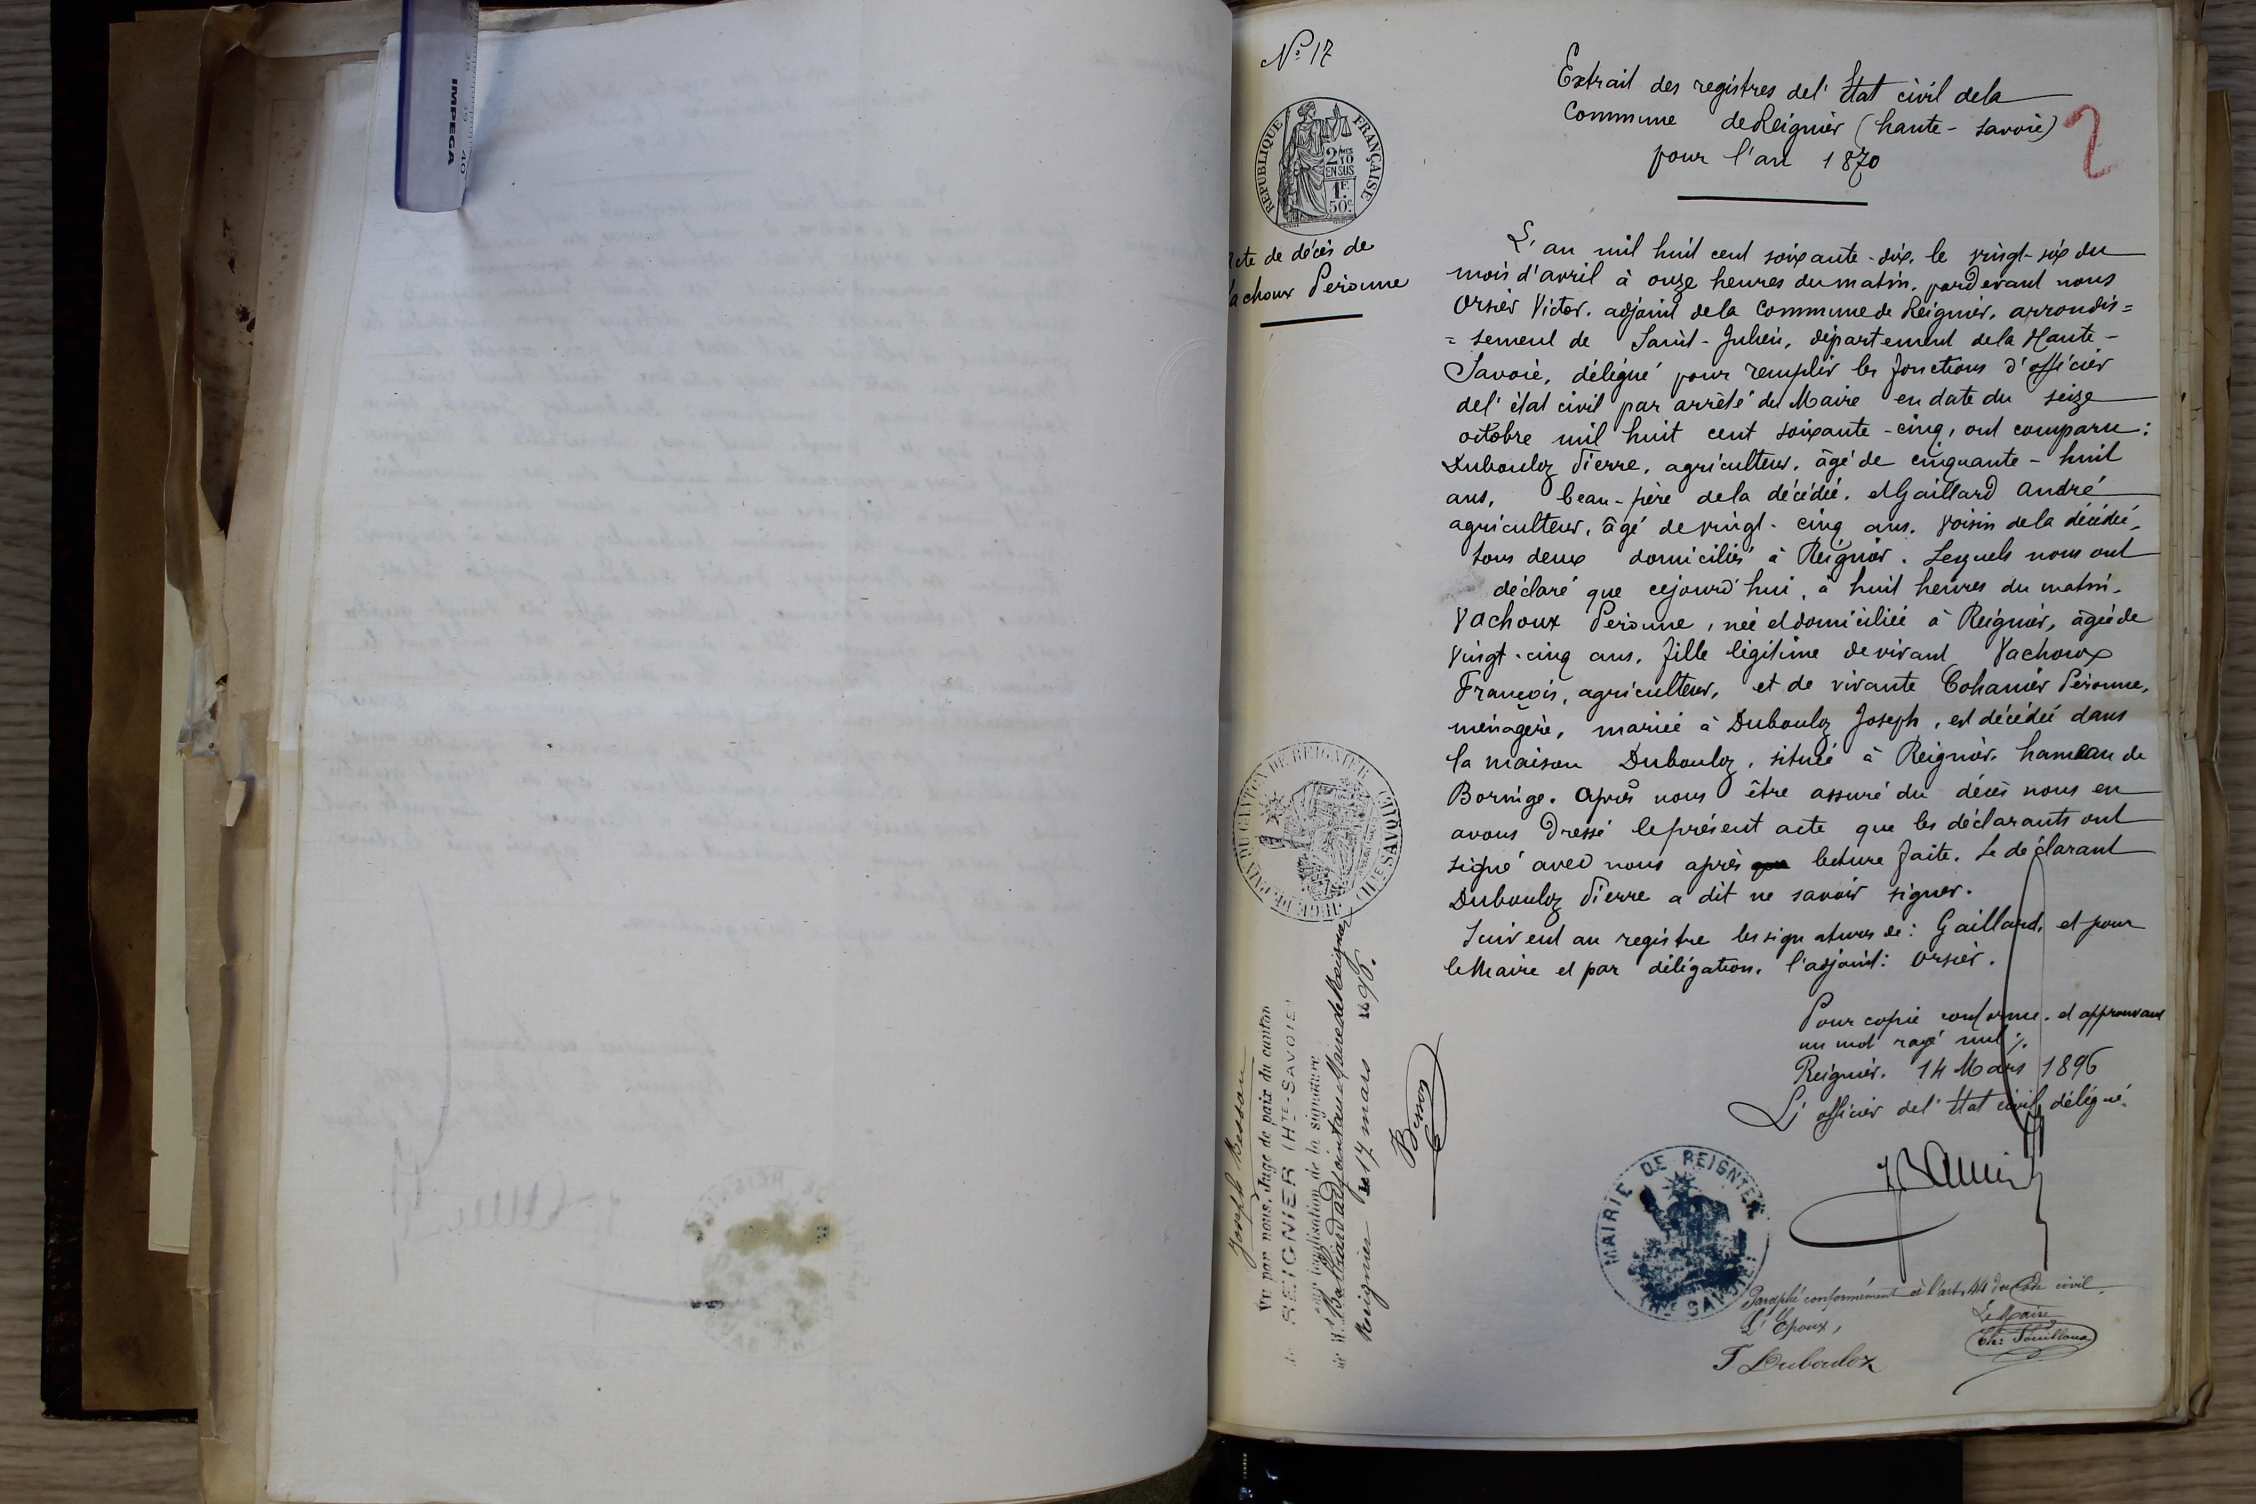 IMPEGA
39
40
N° 17
RÉPUBLIQUE FRANÇAISE
2/10MES
EN SUS
1F.
50c.
Extrait des registres de l'État civil de la
Commune de Reignier (haute-savoie)
pour l'an 1870
2
cte de décès de
achoux Péronne
L'an mil huit cent soixante-dix, le vingt-six du
mois d'avril à onze heures du matin, pardevant nous
Orsier Victor, adjoint de la Commune de Reignier, arrondis=
=sement de Saint-Julien, département de la Haute-
Savoie, délégué pour remplir les fonctions d'officier
de l'état civil par arrêté du Maire en date du seize
octobre mil huit cent soixante-cinq, ont comparu:
Dubouloz Pierre, agriculteur, âgé de cinquante-huit
ans, beau-père de la décédée, et Gaillard André
agriculteur, âgé de vingt-cinq ans, voisin de la décédée,
tous deux domiciliés à Reignier. Lesquels nous ont
déclaré que cejourd'hui, à huit heures du matin,
Vachoux Péronne, née et domiciliée à Reignier, âgée de
vingt-cinq ans, fille légitime de vivant Vachoux
François, agriculteur, et de vivante Cohanier Péronne,
ménagère, mariée à Dubouloz Joseph, est décédée dans
la maison Dubouloz, située à Reignier, hameau de
Boringe. Après nous être assuré du décès nous en
avons dressé le présent acte que les déclarants ont
signé avec nous après lecture faite. Le déclarant
Dubouloz Pierre a dit ne savoir signer.
Suivent au registre les signatures de: Gaillard, et pour
le Maire et par délégation, l'adjoint: Orsier.
Pour copie conforme, et approuvant
un mot rayé nul.
Reignier, 14 Mars 1896
L'officier de l'État civil délégué.
MAIRIE DE REIGNIER
HTE SAVOIE
Paraphé conformément à l'art. 44 du Code civil.
L'Epoux,
Le Maire
J Dubouloz
JUGE DE PAIX DU CANTON DE REIGNIER (HTE SAVOIE)
Joseph Besson
Vu par nous, Juge de paix du canton
de REIGNIER (HTE-SAVOIE)
pour légalisation de la signature
de Mr Balliard adjoint au Maire de Reignier
Reignier le 17 mars 1896.
Besson